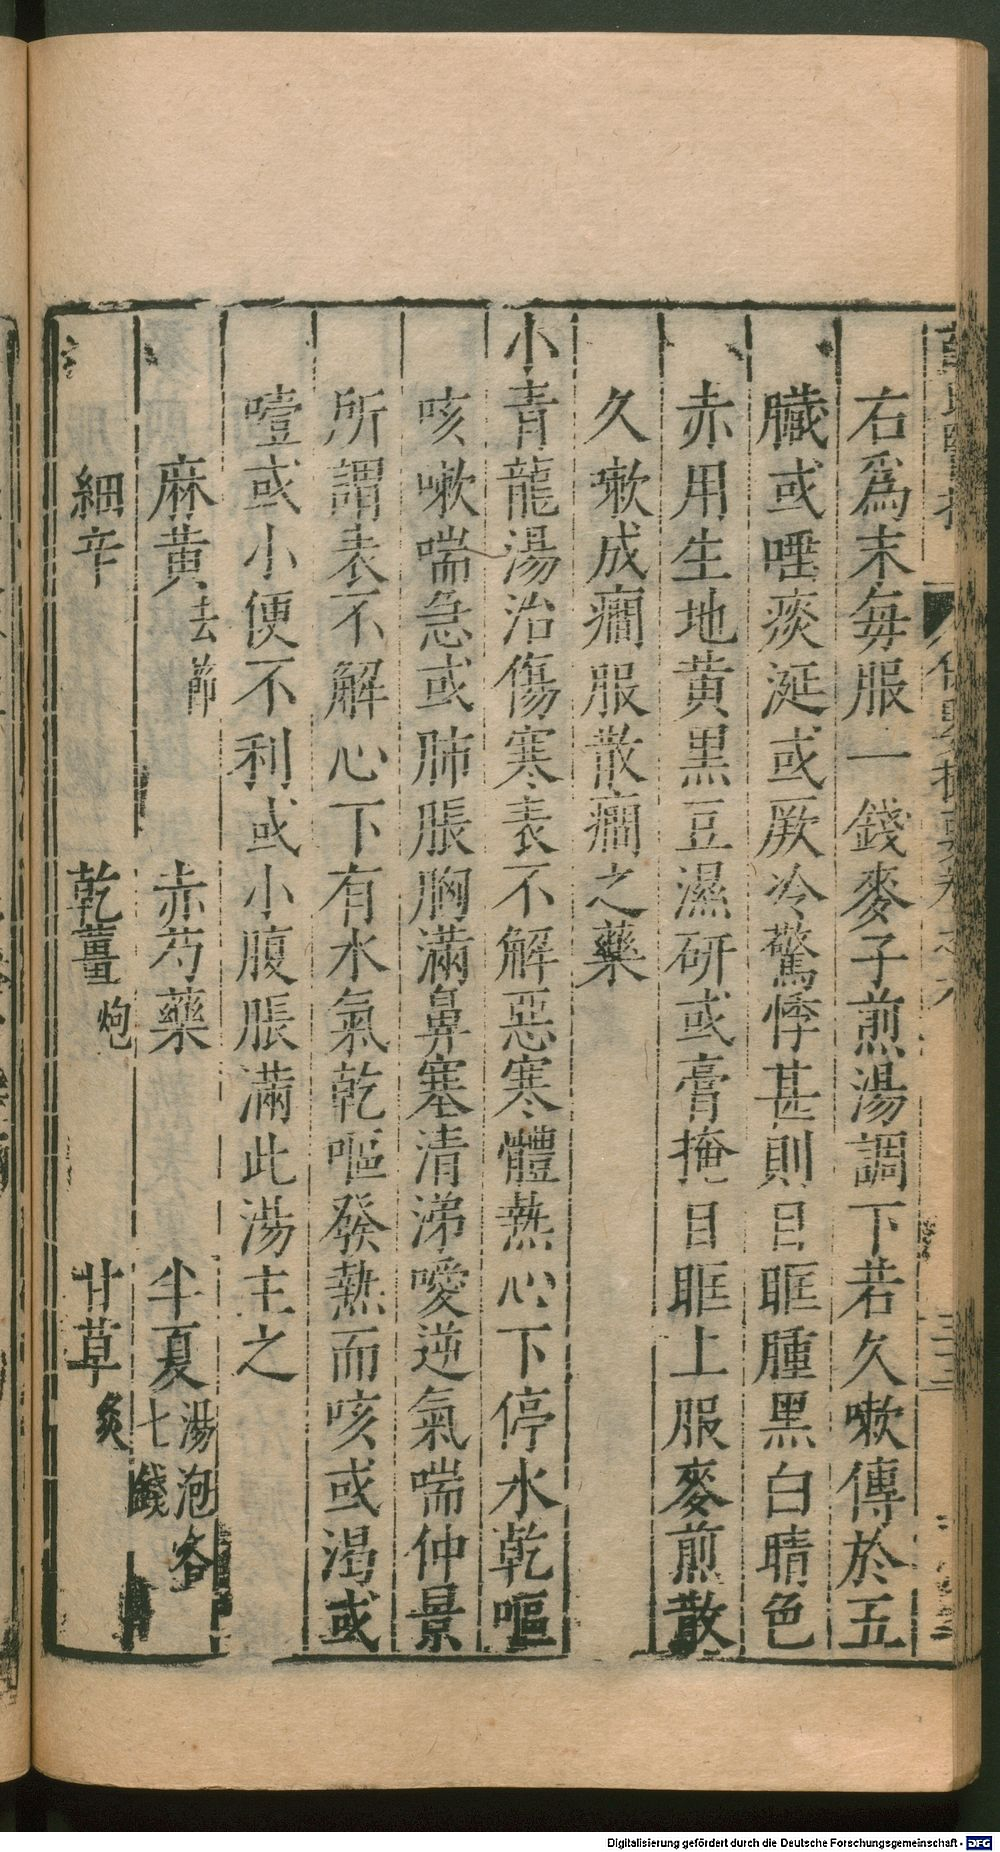 右爲末每服一錢麥子煎湯調下若久嗽傳於五
臟或唾痰涎或厥冷驚悸甚則目眶腫黑白睛色
赤用生地黄黒豆濕研或膏掩目眶上服麥煎散
久嗽成癇服散癇之藥
小青龍湯治傷寒表不解惡寒體熱心下停水乾嘔
咳嗽喘急或肺脹胸滿鼻塞清涕噯逆氣喘仲景
所謂表不解心下有水氣乾嘔發熱而咳或渴或
噎或小便不利或小腹脹滿此湯主之
麻黄去節 赤芍藥 半夏湯泡七錢各
細辛 乾薑炮 甘草炙
Digitalisierung gefördert durch die Deutsche Forschungsgemeinschaft - DFG